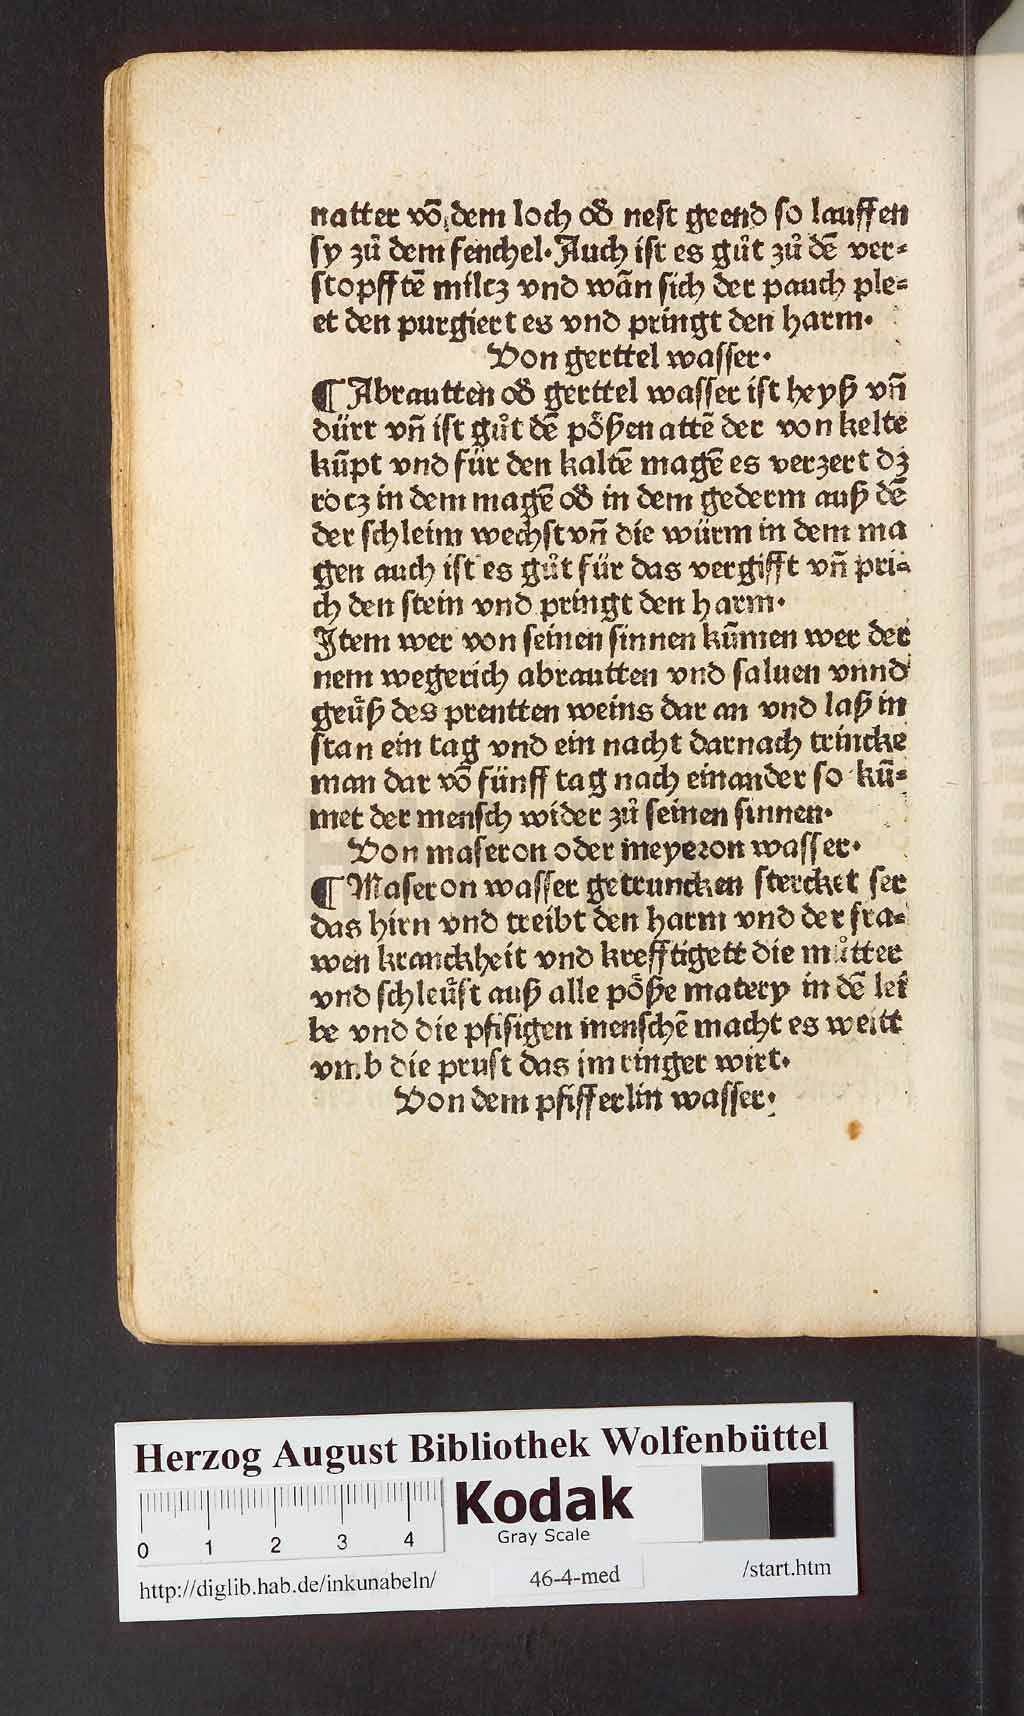 natter vō dem loch od̄ nest geend so lauffen
sy zů dem fenchel. Auch ist es gůt zů dē ver⸗
stopfftē milcz vnd wān sich der pauch ple⸗
et den purgiert es vnd pringt den harm.
Von gerttel wasser.
¶ Abrautten od̄ gerttel wasser ist heyß vn̄
dürr vn̄ ist gůt dē pößen attē der von kelte
kūpt vnd für den kaltē magē es verzert dz
rocz in dem magē od̄ in dem gederm auß dē
der schleim wechst vn̄ die würm in dem ma
gen auch ist es gůt für das vergifft vn̄ pri⸗
ch den stein vnd pringt den harm.
Item wer von seinen sinnen kūmen wer der
nem wegerich abrautten vnd saluen vnnd
geüß des prentten weins dar an vnd laß in
stan ein tag vnd ein nacht darnach trincke
man dar vō fünff tag nach einander so kū⸗
met der mensch wider zů seinen sinnen.
Von maseron oder meyeron wasser.
¶ Maseron wasser getruncken stercket ser
das hirn vnd treibt den harm vnd der fra⸗
wen kranckheit vnd krefftigett die můtter
vnd schleüst auß alle pöße matery in dē lei
be vnd die pfisigen menschē macht es weitt
vmb die prust das im ringer wirt.
Von dem pfifferlin wasser.
Herzog August Bibliothek Wolfenbüttel
Kodak
Gray Scale
0 1 2 3 4
http://diglib.hab.de/inkunabeln/ 46-4-med /start.htm